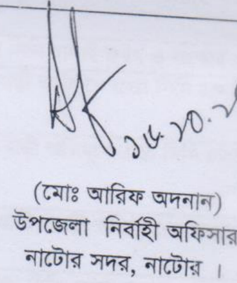 (মোঃ আরিফ অদনান)
উপজেলা নির্বাহী অফিসার
নাটোর সদর, নাটোর ।